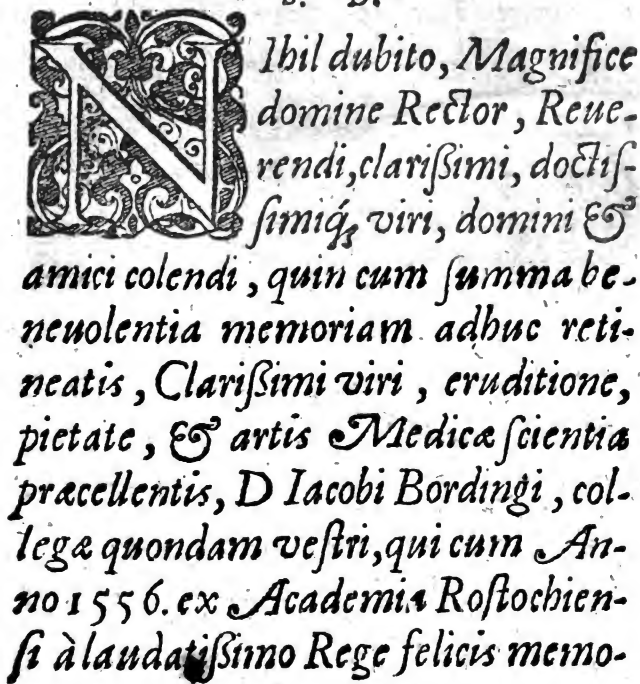 S. D.
NIhil dubito, Magnifice
domine Rector, Reue-
rendi, clarißimi, doctiſ-
ſimiq́ꝫ viri, domini &
amici colendi, quin cum ſumma be-
neuolentia memoriam adhuc reti-
neatis, Clarißimi viri, eruditione,
pietate, & artis Medicæ ſcientia
præcellentis, D Iacobi Bordingi, col-
legæ quondam veſtri, qui cum An-
no 1556. ex Academia Roſtochien-
ſi à laudatißimo Rege felicis memo-